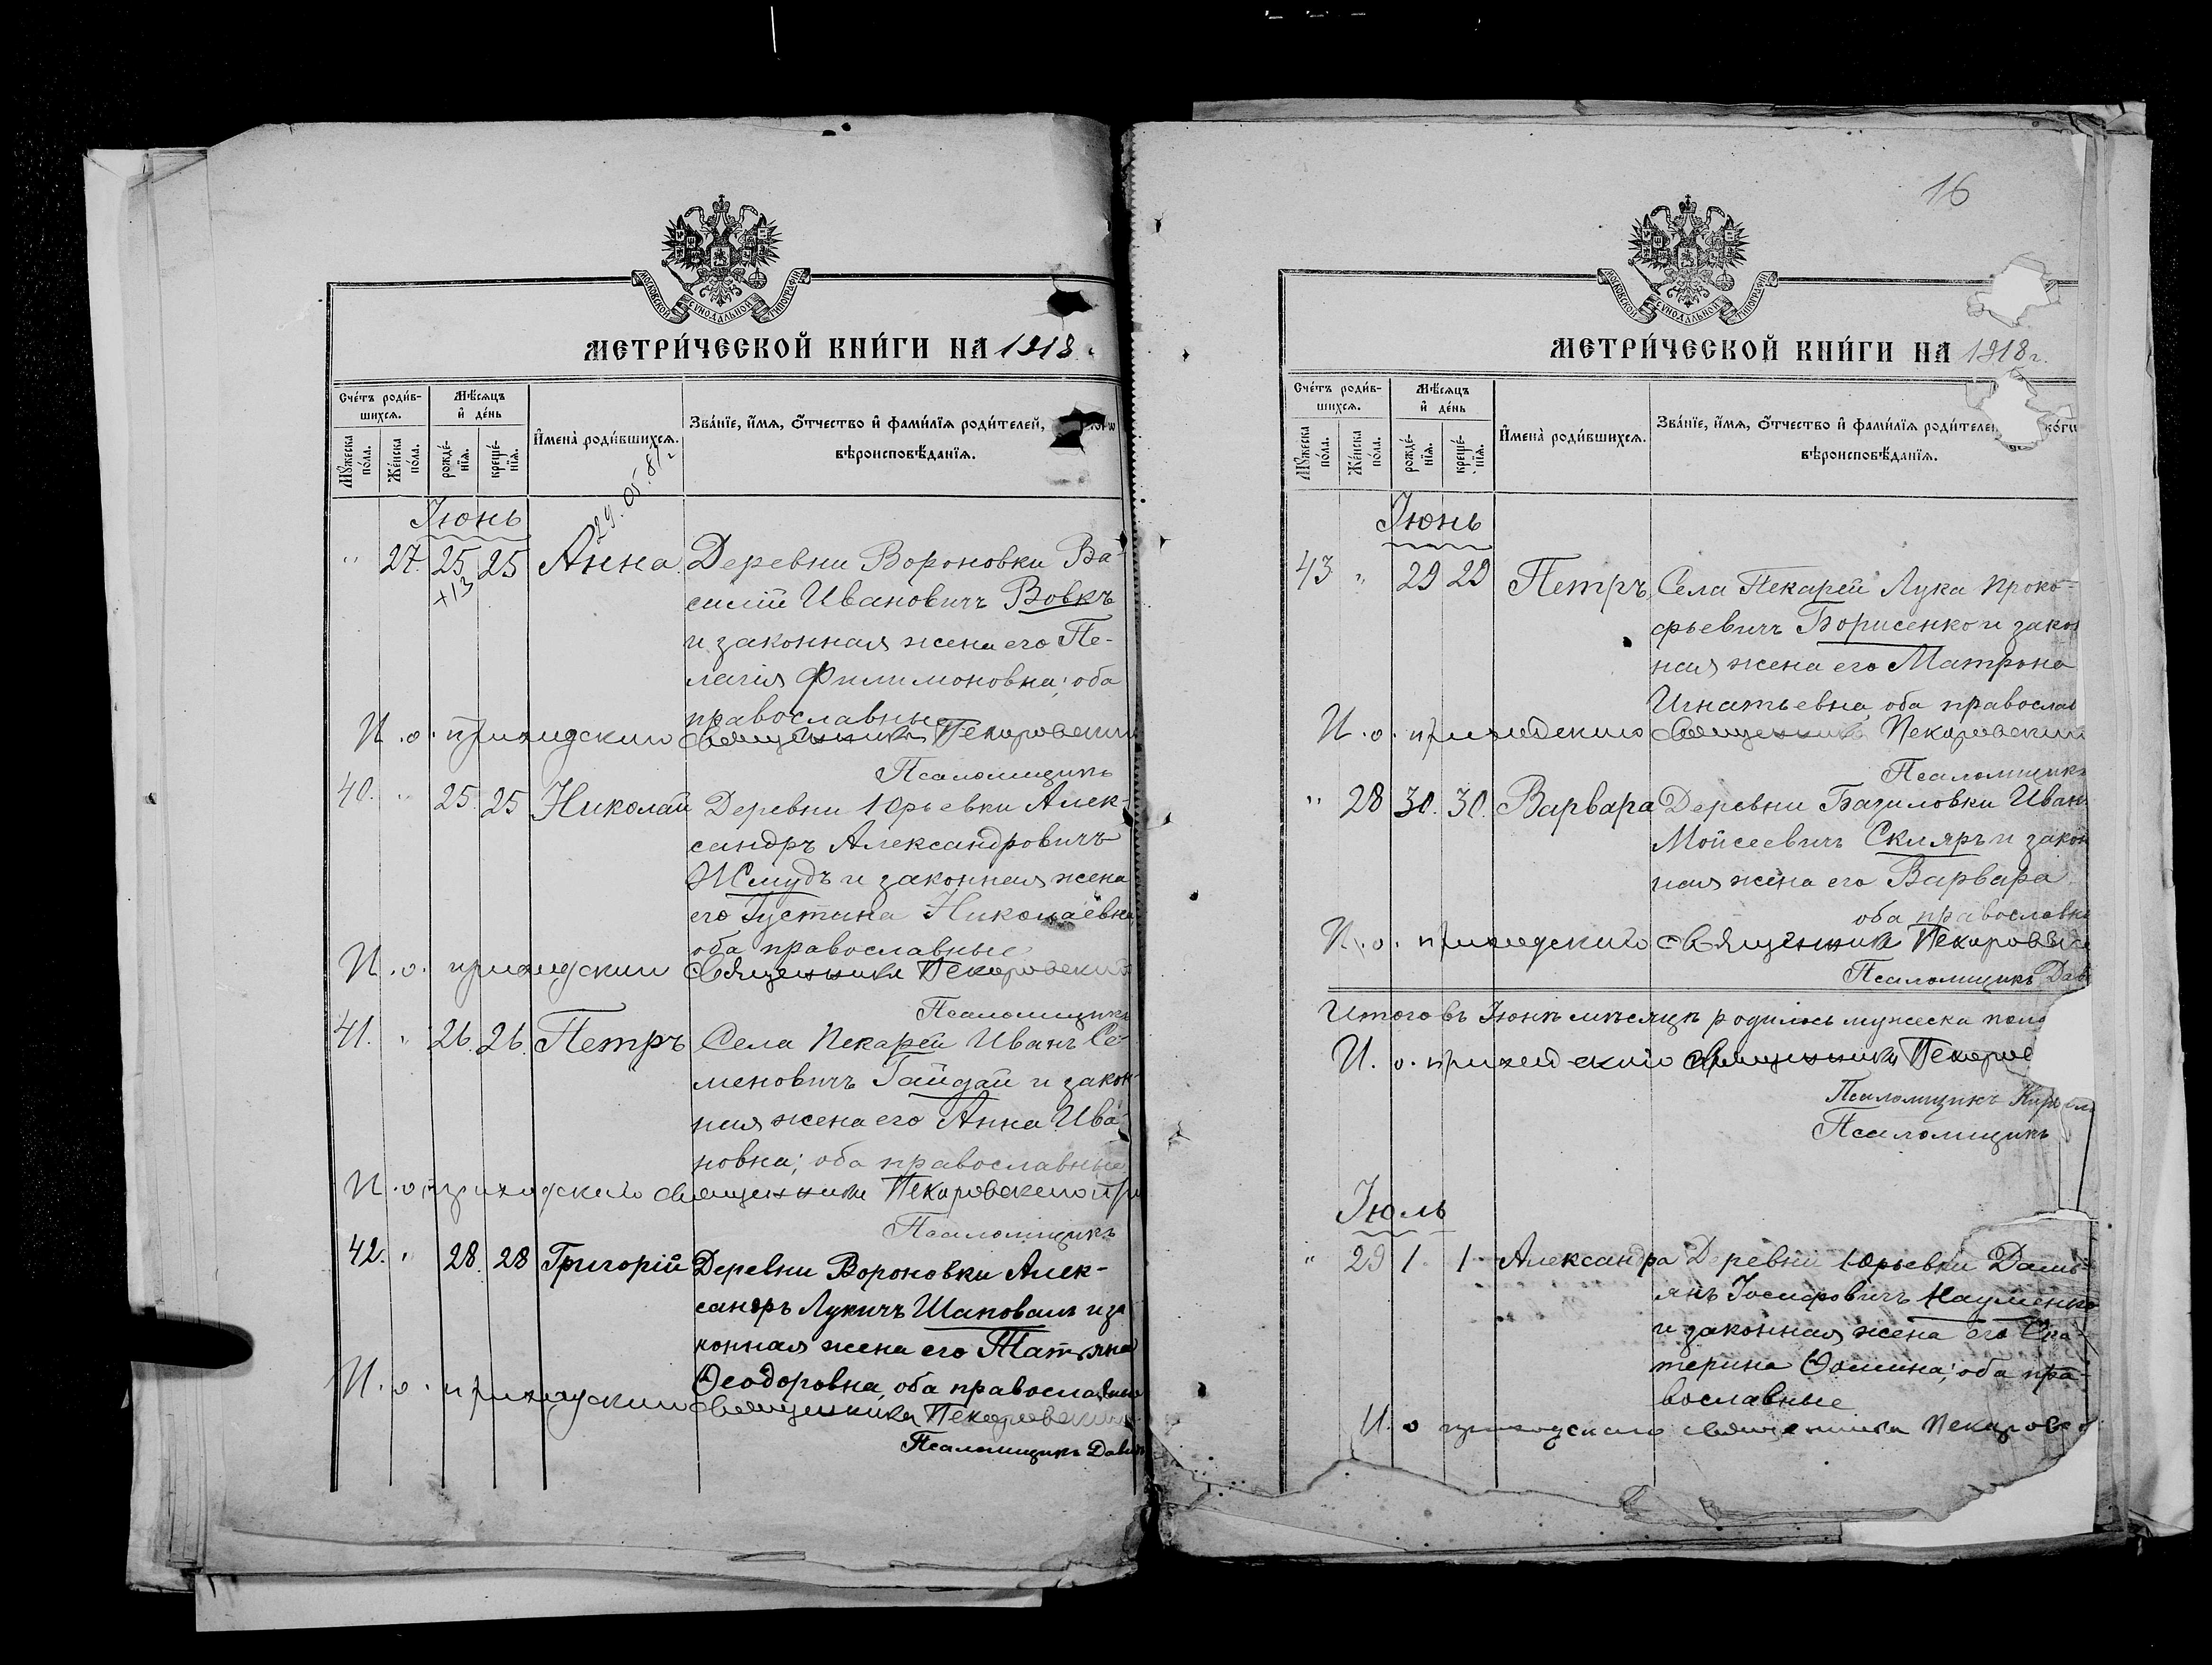 МОСКОВСКОЙ СѴНОДАЛЬНОЙ ТИПОГРАФІИ
МЕТРИ́ЧЕСКОЙ КНИ́ГИ НА 1918
Сче́тъ роди́в-
шихся.
Мѣ́сяцъ
и҆ де́нь
И҆мена̀ роди́вшихся.
Зва́нїе, и҆́мя, ѻ҆́тчество и҆ фами́лїя роди́телей,
вѣроисповѣ́данїя.
Мꙋ́жеска
по́ла.
Же́нска
по́ла.
рожде́-
нїя.
креще́-
нїя.
29.05.81г
Іюнь
" 27. 25 25 Анна. Деревни Вороновки Ва-
+13
силій Ивановичъ Вовкъ
и законная жена его Пе-
лагія Филимоновна; оба
православные
И. о. приходскаго священника Пекаровский
Псаломщикъ
40. " 25. 25 Николай Деревни Юрьевки Алек-
сандръ Александровичъ
Жмудъ и законная жена
его Іустина Николаевна
оба православные
И. о. приходскаго священника Пекаровский
Псаломщикъ
41. " 26. 26. Петръ Села Пекарей Иванъ Се-
меновичъ Гайдай и закон-
ная жена его Анна Ива-
новна; оба православные
И. о. приходскаго священника Пекаровский
Псаломщикъ
42. " 28. 28 Григорій Деревни Вороновки Алек-
сандръ Лукичъ Шаповалъ и за
конная жена его Татьяна
Ѳеодоровна, оба православные
И. о. приходскаго священника Пекаровский
Псаломщикъ Давид
16
МОСКОВСКОЙ СѴНОДАЛЬНОЙ ТИПОГРАФІИ
МЕТРИ́ЧЕСКОЙ КНИ́ГИ НА 1918г.
Сче́тъ роди́в-
шихся.
Мѣ́сяцъ
и҆ де́нь
И҆мена̀ роди́вшихся.
Зва́нїе, и҆́мя, ѻ҆́тчество и҆ фами́лїя роди́телей
вѣроисповѣ́данїя.
Мꙋ́жеска
по́ла.
Же́нска
по́ла.
рожде́-
нїя.
креще́-
нїя.
Іюнь
43 " 29 29 Петръ Села Пекарей Лука Проко-
фьевичъ Борисенко и закон
ная жена его Матрона
Игнатьевна, оба православ
И. о. приходскаго священника Пекаровский
Псаломщикъ
" 28 30. 30. Варвара Деревни Базиловки Иван
Мойсеевичъ Скляръ и закон
ная жена его Варвара
оба православн
И. о. приходскаго священника Пекаровс
Псаломщикъ Дав
Итого въ Іюнѣ мѣсяцѣ родилось мужеска пола
И. о. приходскаго священника Пекаров
Псаломщикъ
Псаломщикъ
Іюль
" 29 1. 1 Александра Деревни Юрьевки Дамі-
янъ Іосифовичъ Науменко
и законная жена его Ека-
терина Ѳомина; оба пра-
вославные
И. о приходскаго священника Пекаров